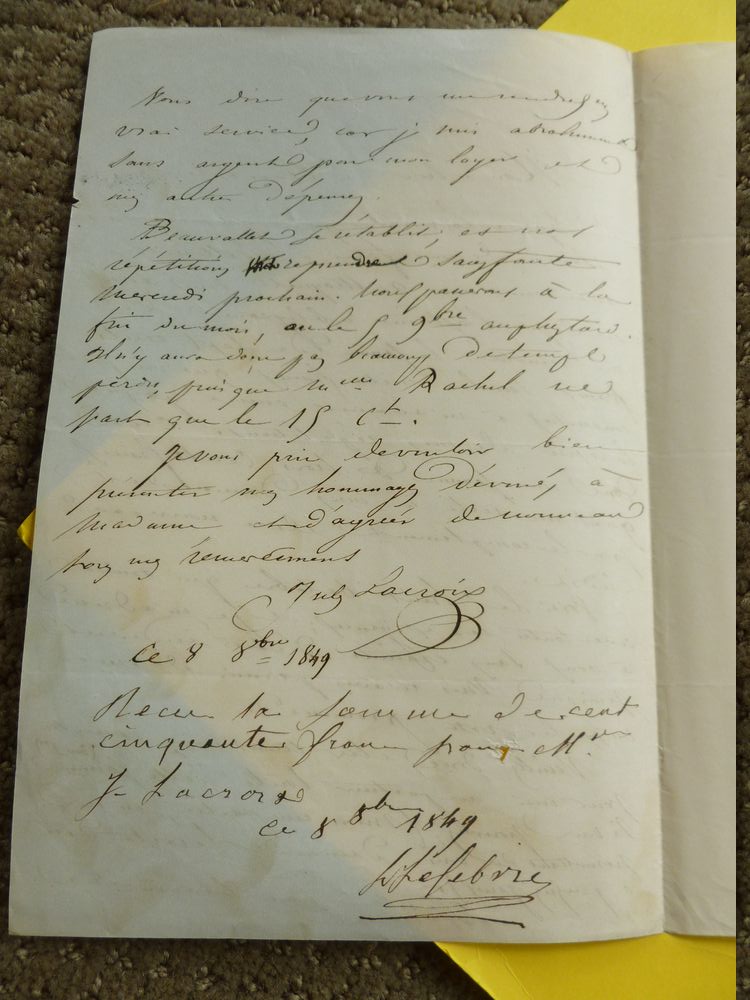 Vous dire que vous me rendrez un
vrai service, car je suis absolument
sans argent pour mon loyer et
mes autres dépenses.
Beauvallet se rétablit, et nos
répétitions reprendront sans faute
mercredi prochain. Nous passerons à la
fin du mois, ou le 5 9bre au plus tard.
Il n'y aura donc pas beaucoup de temps
perdu, puisque Mme Rachel ne
part que le 15 Ct.
Je vous prie de vouloir bien
présenter mes hommages dévoués à
Madame et d'agréer de nouveau
tous mes remerciements
Jules Lacroix
Ce 8 8bre 1849
Recu la somme de cent
cinquante francs pour Mr
J. Lacroix
Ce 8 8bre 1849
Lefebvre